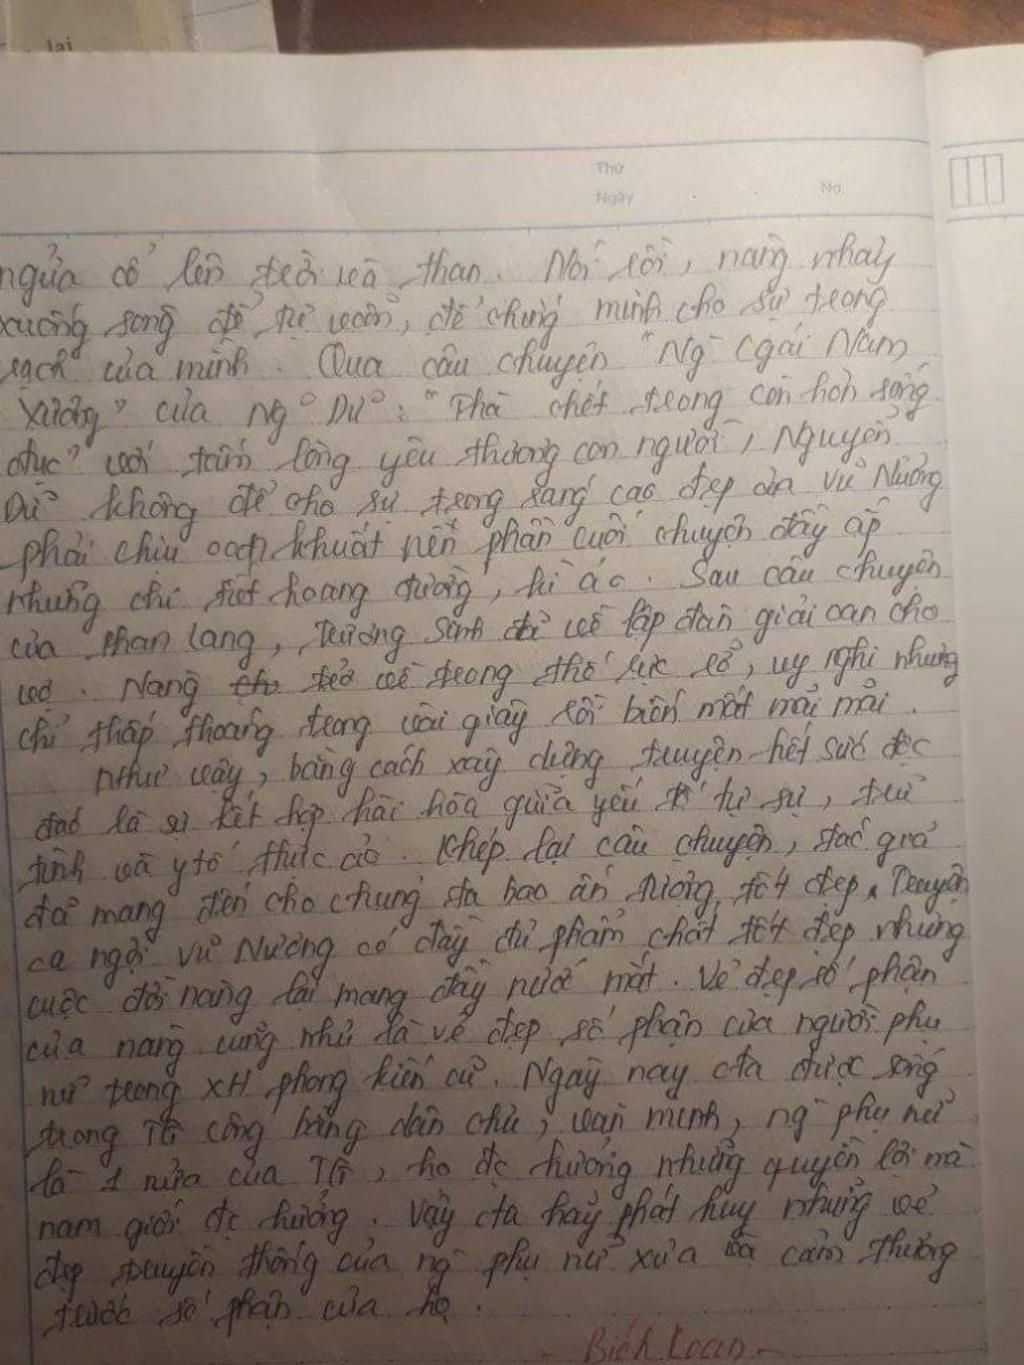 lại
Thứ
Ngày No.
ngửa cổ lên trời và than. Nói rồi, nàng nhảy
xuống sông để tự vẫn, để chứng minh cho sự trong
sạch của mình. Qua câu chuyện "Ng` Cgái Nam
Xương" của Ng~ Dữ: "Thà chết trong còn hơn sống
đục" với tấm lòng yêu thương con người, Nguyễn
Dữ không để cho sự trong sáng cao đẹp của Vũ Nương
phải chịu oan khuất nên phần cuối chuyện đầy ắp
những chi tiết hoang đường, hư ảo. Sau câu chuyện
của Phan Lang, Trương Sinh về lập đàn giải oan cho
vợ. Nàng trở về trong rỡ, uy nghi nhưng
chỉ thấp thoáng trong vài giây rồi biến mất mãi mãi.
Như vậy, bằng cách xây dựng truyện hết sức độc
đáo là sự kết hợp hài hòa giữa yếu tố tự sự, trữ
tình và ytố thực ảo. Khép lại câu chuyện, tác giả
đã mang đến cho chúng ta bao ấn tượng tốt đẹp. Truyện
ca ngợi Vũ Nương có đầy đủ phẩm chất tốt đẹp nhưng
cuộc đời nàng lại mang đầy nước mắt. Vẻ đẹp số phận
của nàng cũng như là vẻ đẹp số phận của người phụ
nữ trong XH phong kiến cũ. Ngày nay cta được sống
trong TG công bằng dân chủ, văn minh, ng` phụ nữ
là 1 nửa của TG, họ đc hưởng những quyền lợi mà
nam giới đc hưởng. Vậy cta hãy phát huy những vẻ
đẹp truyền thống của ng` phụ nữ xưa và cảm thương
trước số phận của họ.
- Bích Loan -